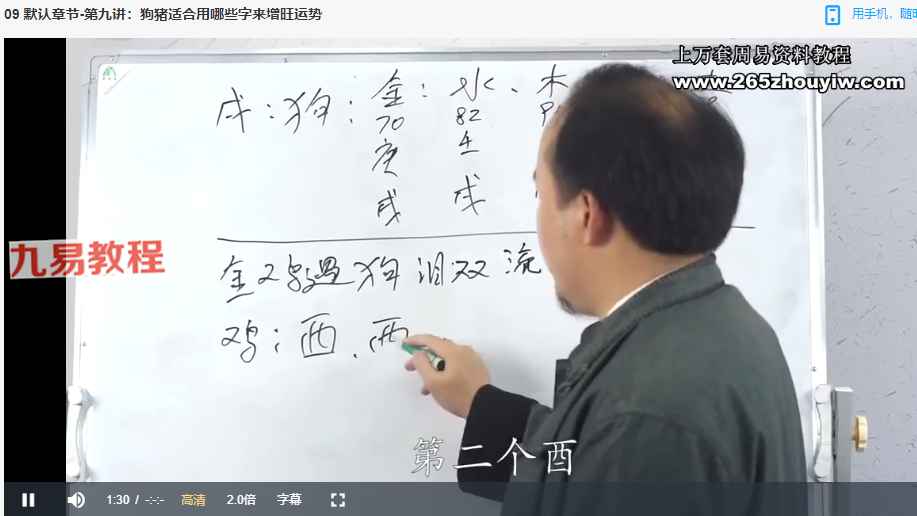 09 默认章节-第九讲：狗猪适合用哪些字来增旺运势
用手机，随时
上万套周易资料教程
www.265zhouyiw.com
戌：狗：金：水、木
70 82
庚 壬
戌 戌
九易教程
金又鸡遇狗泪双流
鸡：酉、西
第二个酉
1:30 / -:-:- 高清 2.0倍 字幕